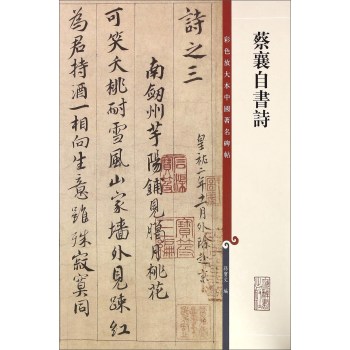 蔡襄自書詩
彩色放大本中國著名碑帖
孫寶文 編
詩之三
皇祐二年十一月外除赴京
南劒州芋陽鋪見臘月桃花
可笑夭桃耐雪風山家墻外見疎紅
為君持酒一相向生意雖殊寂寞同